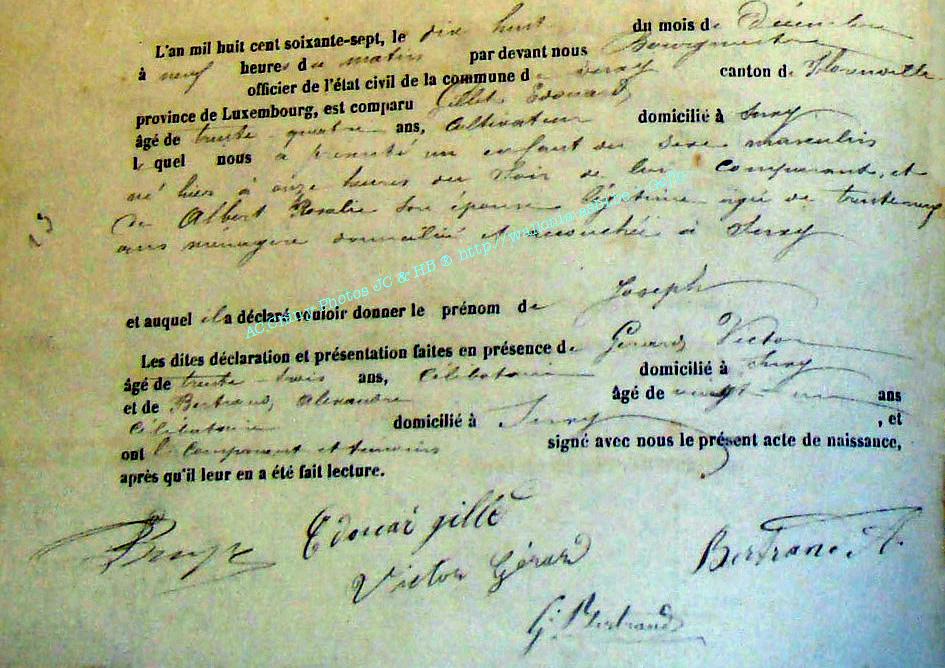 L'an mil huit cent soixante-sept, le dix huit du mois de Décembre
à neuf heures du matin par devant nous Bourgmestre
officier de l'état civil de la commune de canton de Florenville
province de Luxembourg, est comparu Gillet Edouard
âgé de trente-quatre ans, Cultivateur domicilié à
lequel nous a présenté un enfant du sexe masculin
né hier à onze heures du soir de lui comparant, et
de Albert Rosalie son épouse légitime agée de trente neuf
ans ménagère domiciliée et accouchée à
et auquel il a déclaré vouloir donner le prénom de Joseph
Les dites déclaration et présentation faites en présence de Gérard Victor
âgé de trente-trois ans, Célibataire domicilié à
et de Bertrand Alexandre âgé de vingt-un ans
Célibataire domicilié à , et
ont le Comparant et témoins signé avec nous le présent acte de naissance,
après qu'il leur en a été fait lecture.
Edouar gille
Victor Gérard
Bertrand A.
G. Bertrand
19
AC Photos JC & HB @ http://